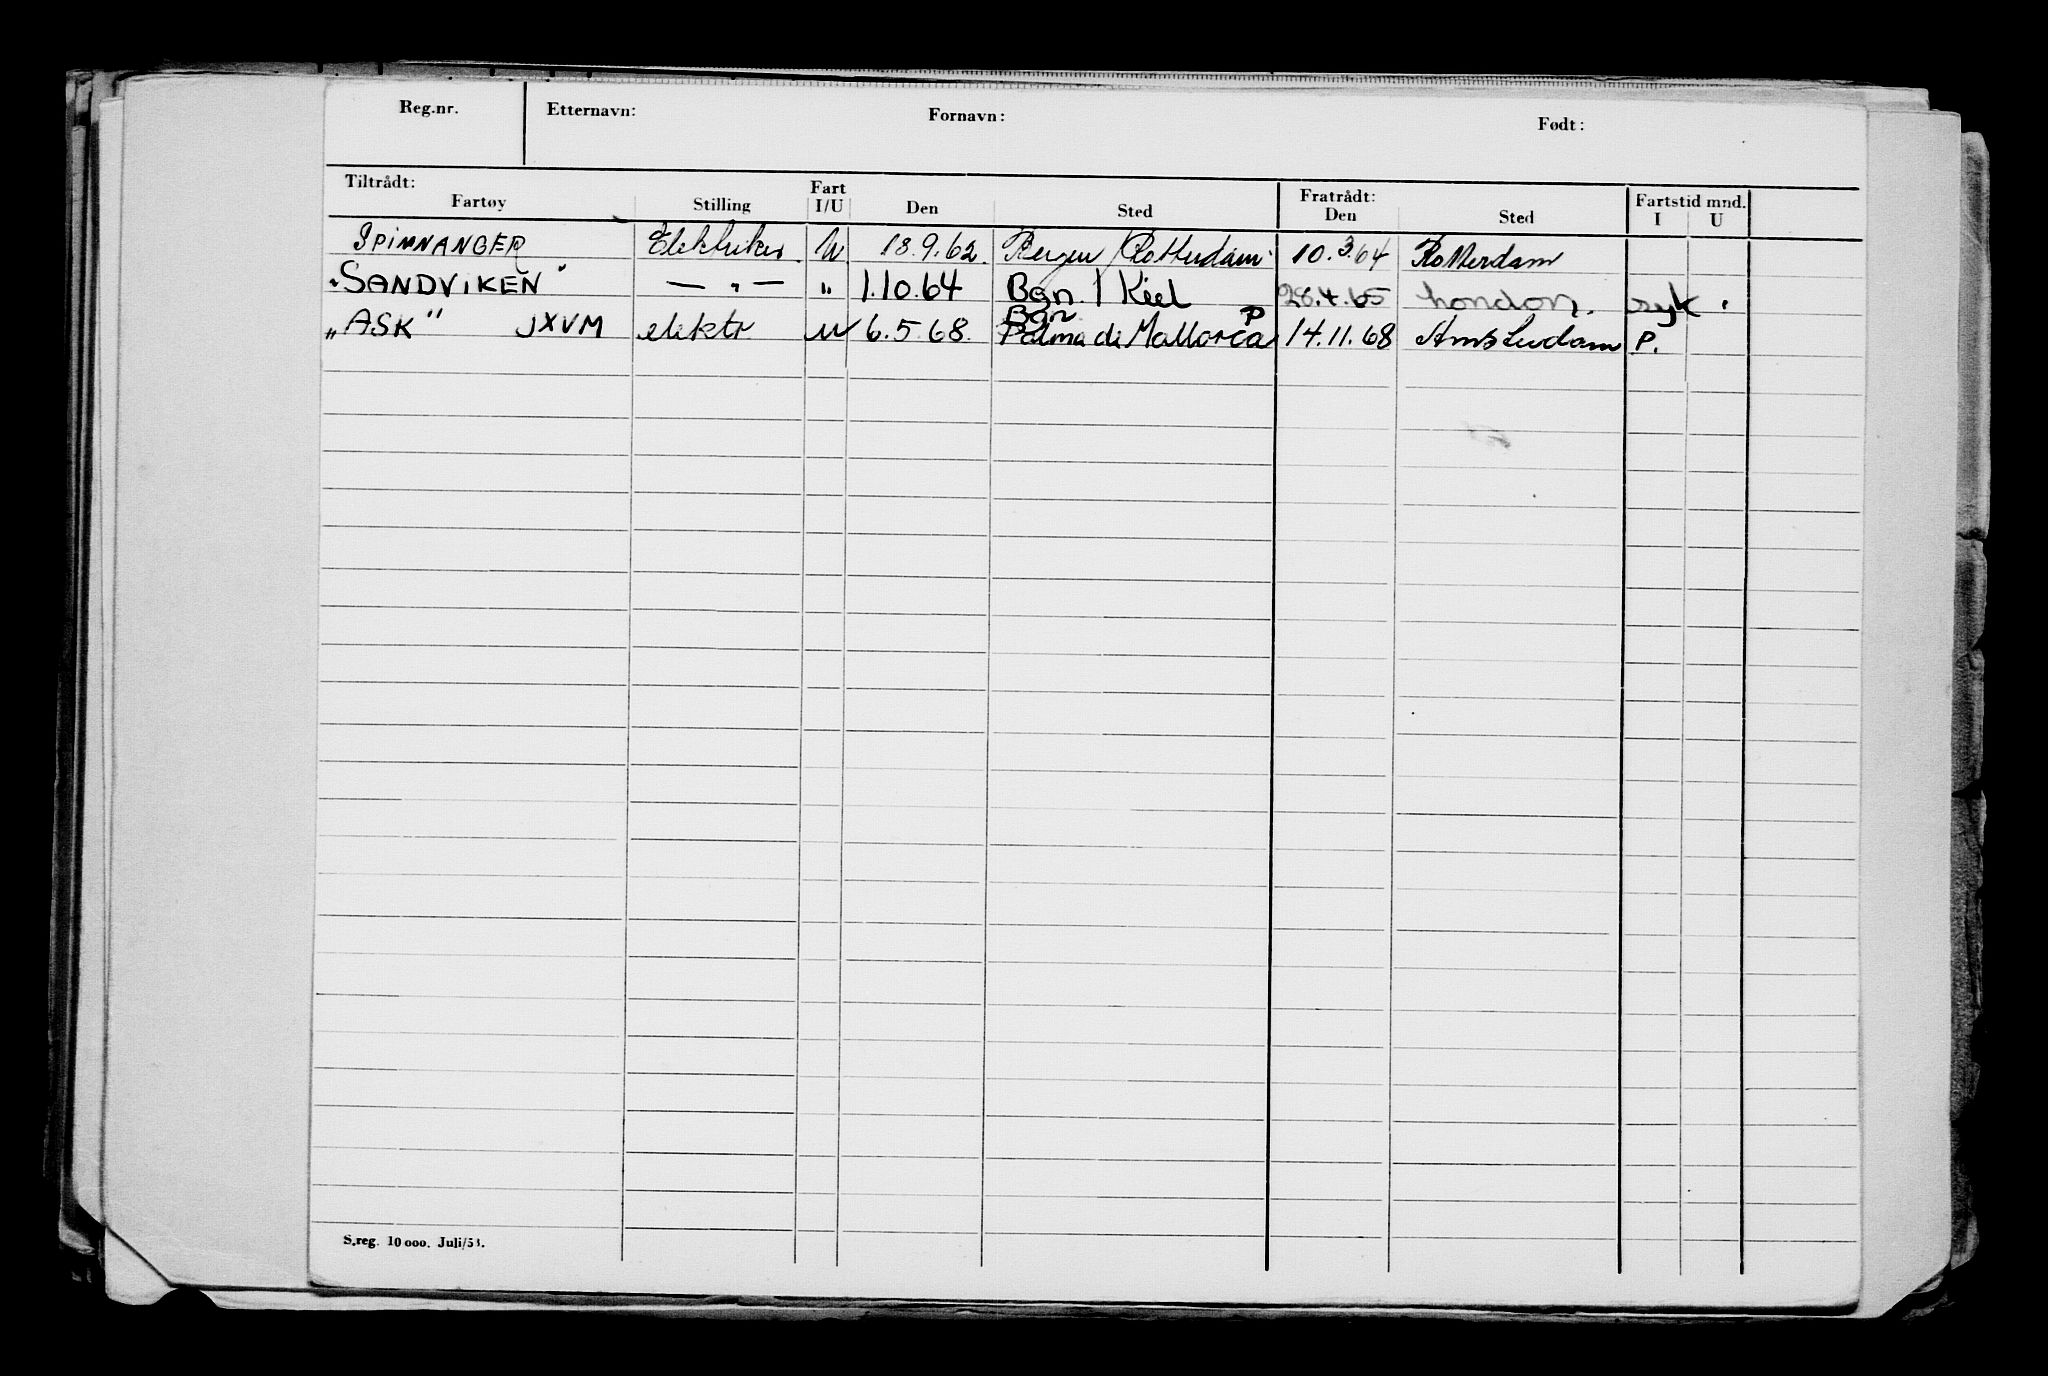 Reg.nr. Etternavn: Fornavn: Født:
Tiltrådt: Fartøy Stilling Fart I/U Den Sted Fratrådt: Den Sted Fartstid mnd. I U
SPINNANGER Elektriker U 18.9.62. Bergen / Rotterdam. 10.3.64 Rotterdam
"SANDVIKEN" — " — " 1.10.64 Bgn / Kiel 28.4.65 London. syk.
Bgn P
"ASK" JXVM elektr U 6.5.68. Palma de Mallorca 14.11.68 Amsterdam P.
S.reg. 10 000. Juli/53.